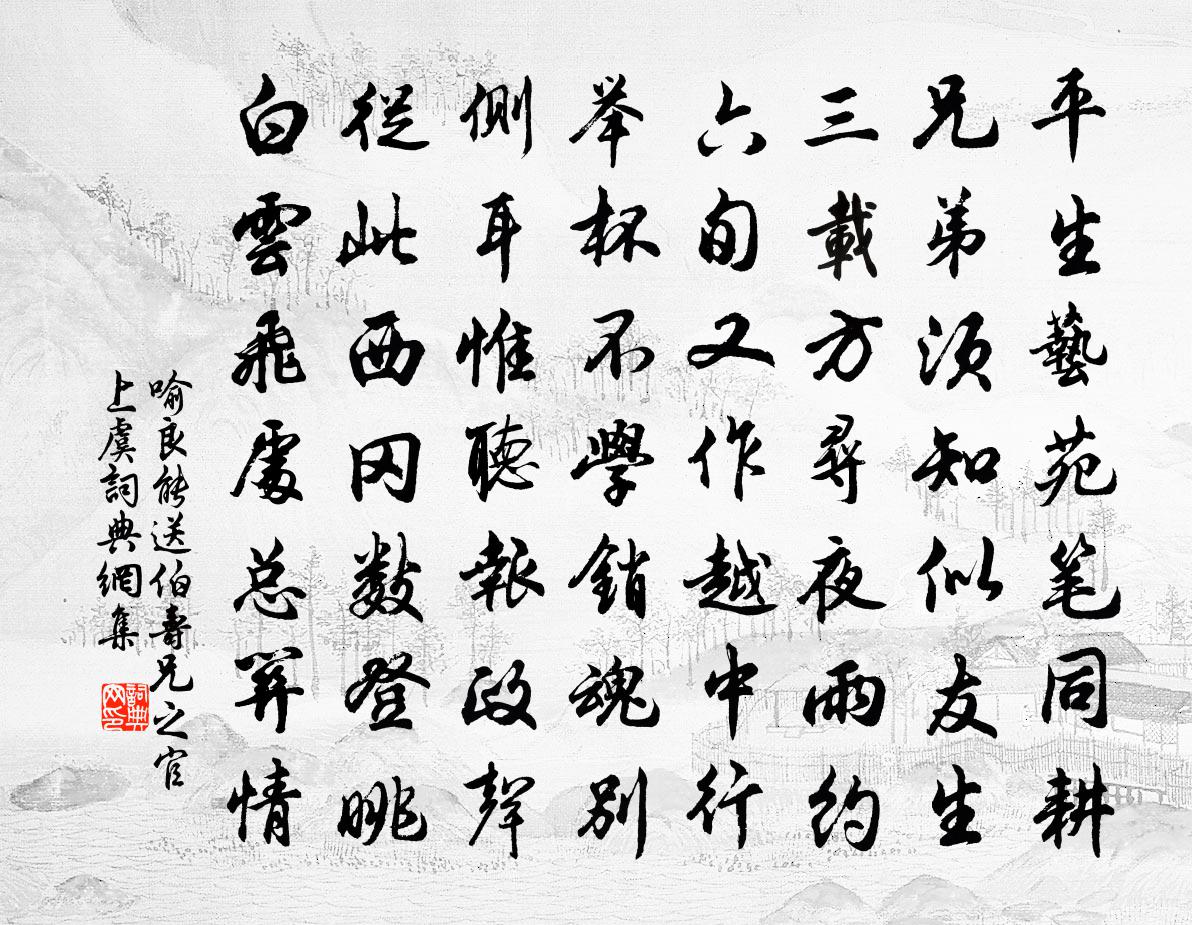 平生藝苑笔同耕
兄弟須知似友生
三載方尋夜雨約
六旬又作越中行
举杯不學銷魂别
側耳惟聽報政聲
從此西冈數登眺
白雲飛處总關情
喻良能送伯壽兄之官
上虞詞典網集
詞典
网印